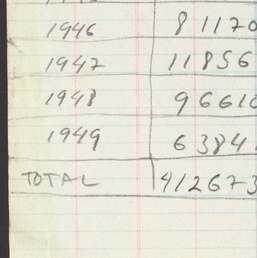 1946 81170
1947 11856
1948 9661
1949 6384
TOTAL 412673